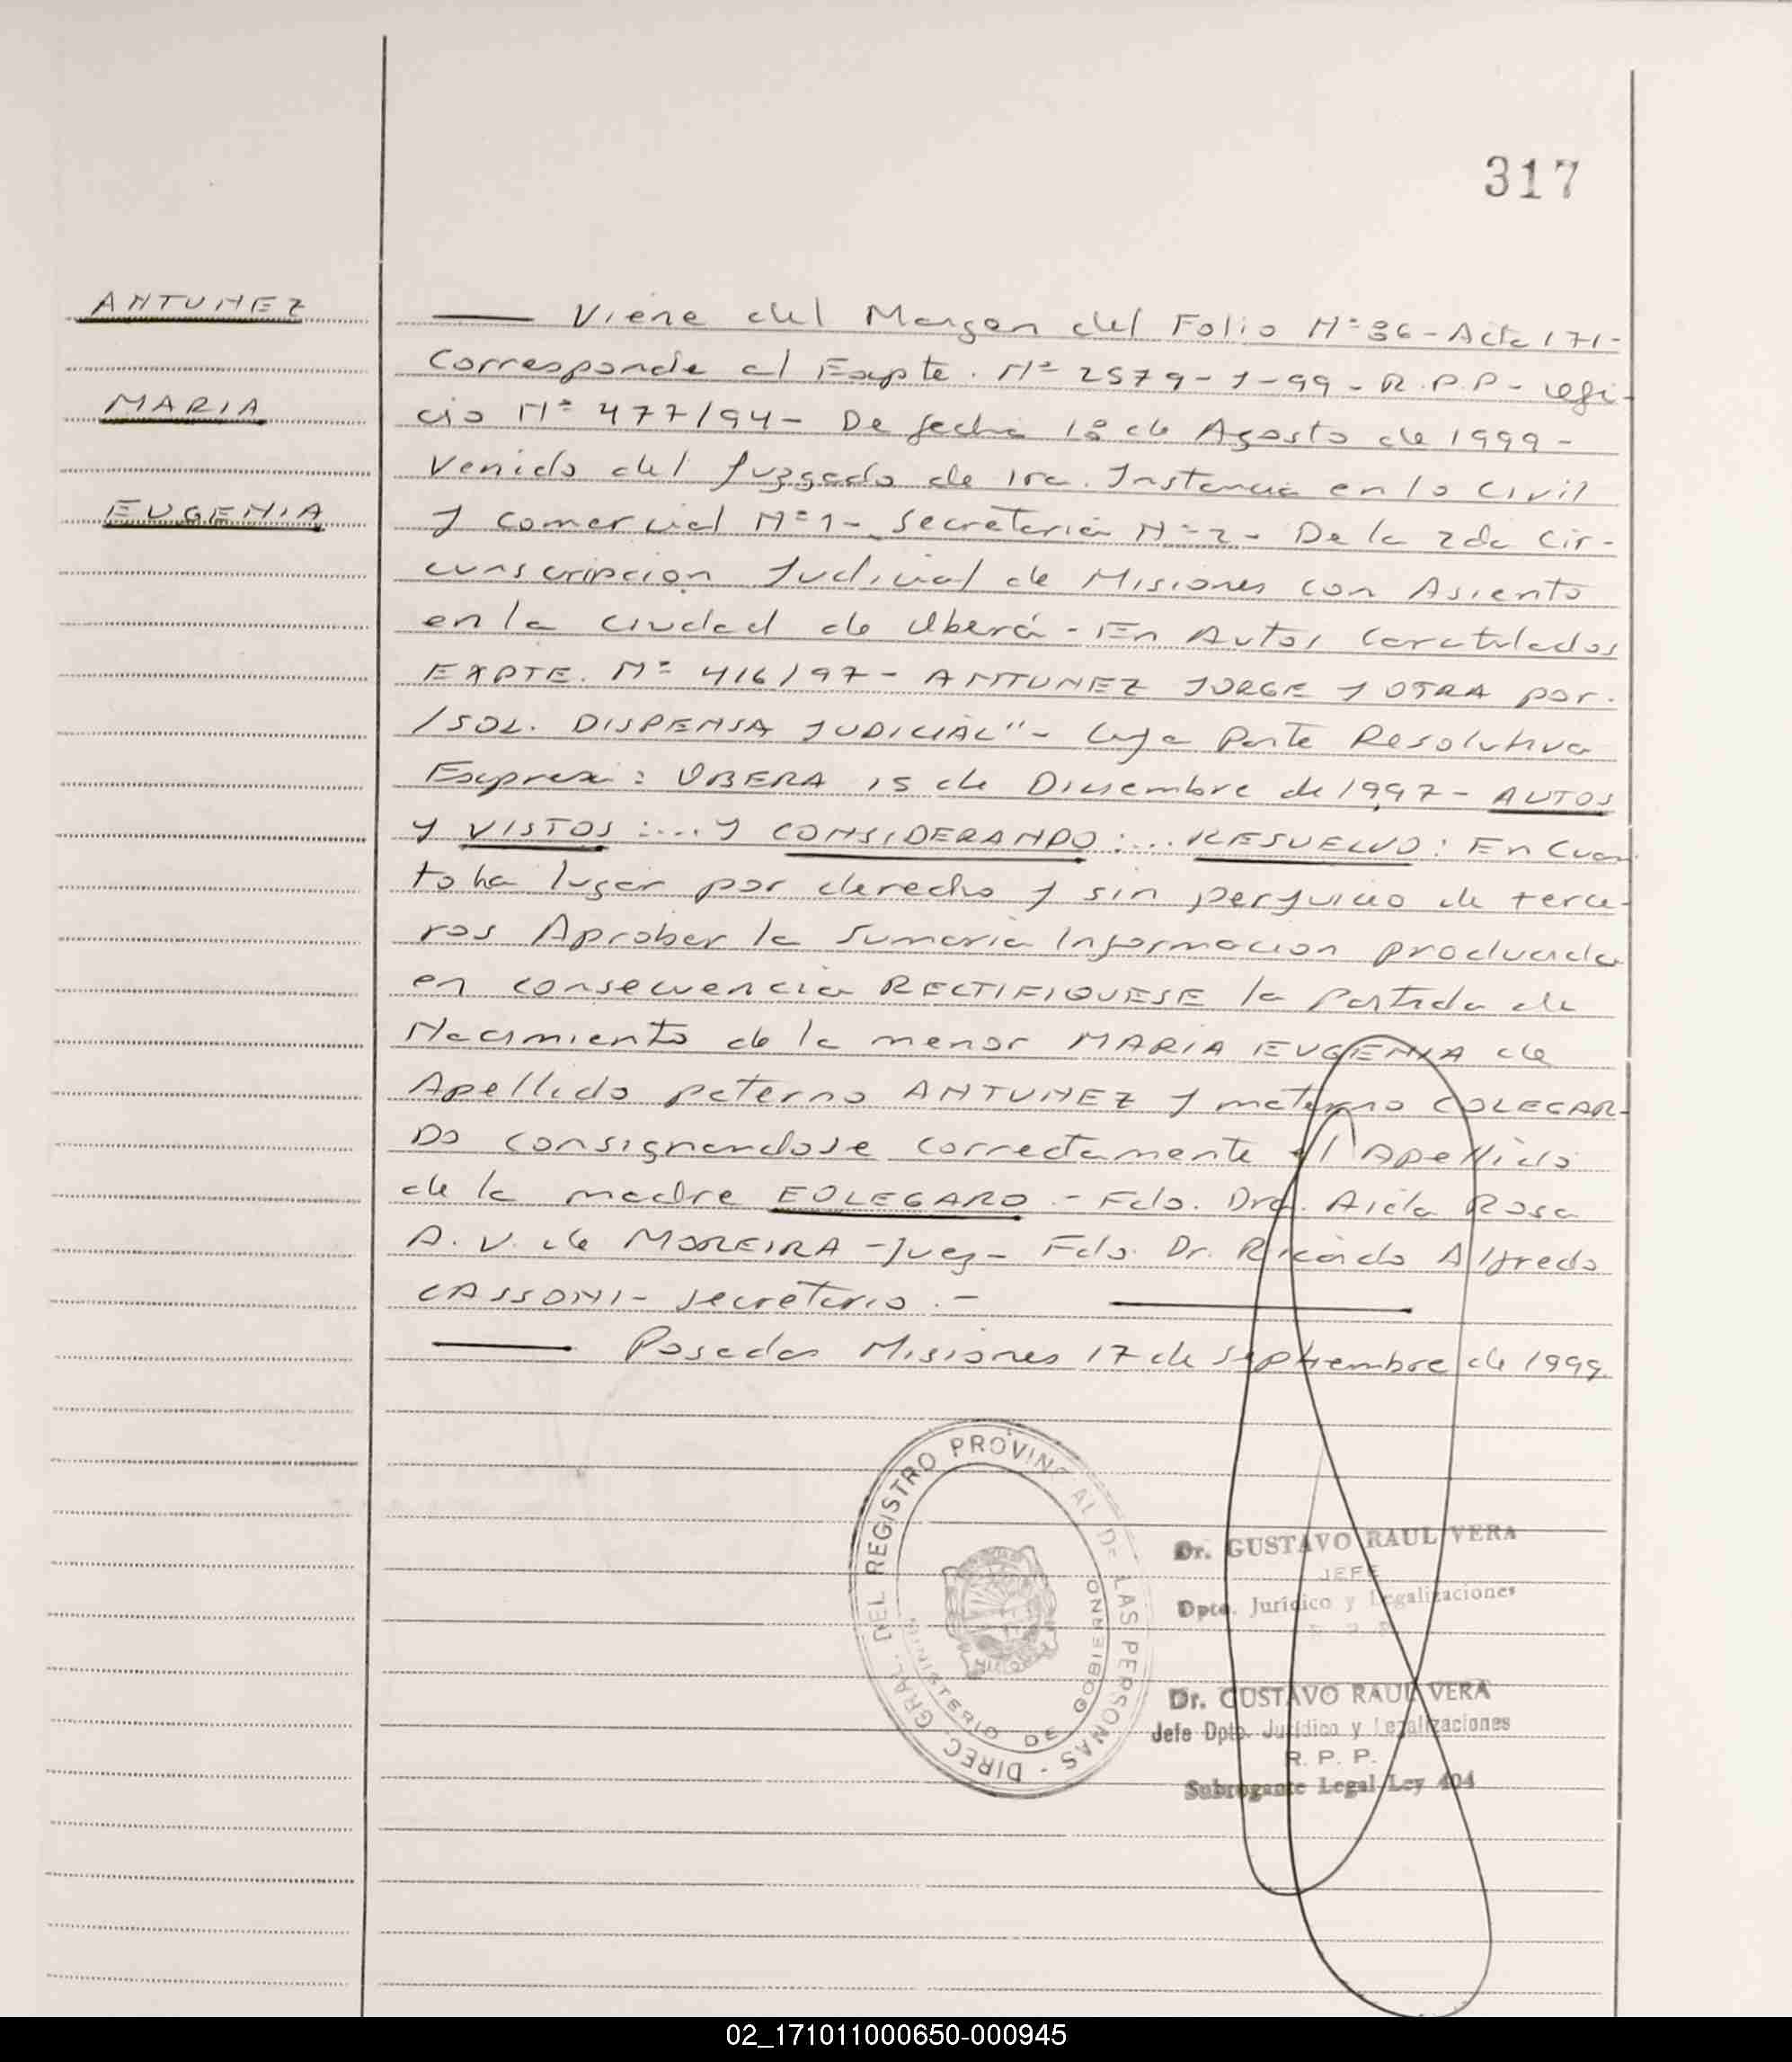 317
ANTUNEZ
MARIA
EUGENIA
Viene del Margen del Folio Nº 36 - Acta 171-
Corresponde al Expte. Nº 2579-Y-99 - R.P.P - Ofi-
cio Nº 477/94 - De fecha 18 de Agosto de 1999 -
Venido del Juzgado de 1ra. Instancia en lo Civil
y Comercial Nº 1 - Secretaria Nº 2 - De la 2da Cir-
cunscripcion Judicial de Misiones con Asiento
en la Ciudad de Oberá - En Autos Caratulados
EXPTE. Nº 416/97 - ANTUNEZ JORGE Y OTRA por.
/SOL. DISPENSA JUDICIAL" - Cuya Parte Resolutiva
Expresa: OBERA 15 de Diciembre de 1997 - AUTOS
Y VISTOS:... Y CONSIDERANDO:... RESUELVO: En Cuan
to ha lugar por derecho y sin perjuicio de terce-
ros Aprobar la Sumaria Informacion producida
en consecuencia RECTIFIQUESE la Partida de
Nacimiento de la menor MARIA EUGENIA de
Apellido paterno ANTUNEZ y materno COLEGAR-
DO consignandose correctamente el Apellido
de la madre EOLEGARO - Fdo. Dra. Aida Rosa
A. V. de MOREIRA - Juez - Fdo. Dr. Ricardo Alfredo
CASSONI - Secretario. -
Posadas Misiones 17 de Septiembre de 1999.
DIREC. GRAL. DEL REGISTRO PROVINCIAL DE LAS PERSONAS -
MINISTERIO DE GOBIERNO
Dr. GUSTAVO RAUL VERA
JEFE
Dpto. Jurídico y Legalizaciones
Dr. GUSTAVO RAUL VERA
Jefe Dpto. Jurídico y Legalizaciones
R. P. P.
Subrogante Legal Ley 404
02_171011000650-000945